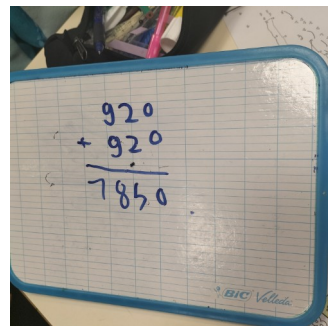 920
+ 920
1840
BIC Velleda